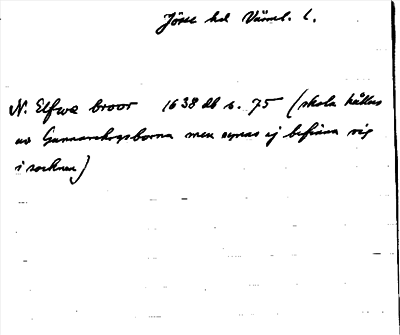 Jösse hd Värml. l.
N. Elfwa broor 1638 db s. 75 (skola hållas
av Gunnarskogsborna men synas ej befinna sig
i socknen)